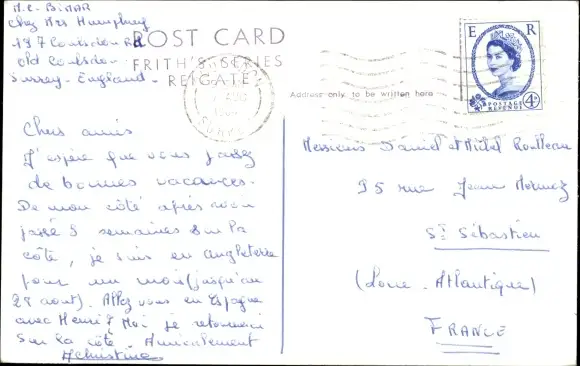 M.C. BINAR
Chez Mrs Humphrey
197 Coulsdon Rd
Old Coulsdon
Surrey - England -
POST CARD
FRITH'S SERIES
REIGATE
Address only to be written here
E R
POSTAGE
REVENUE
4D
Chers amis
J'espère que vous passez
de bonnes vacances.
De mon côté après avoir
passé 5 semaines sur la
côte, je suis en Angleterre
pour un mois (jusqu'au
28 août). Allez vous en Espagne
avec Henri? Moi je retournerai
sur la côte. Amicalement
Christine
Messieurs Daniel et Michel
95 rue Jean Mermoz
St Sébastien
(Loire - Atlantique)
FRANCE